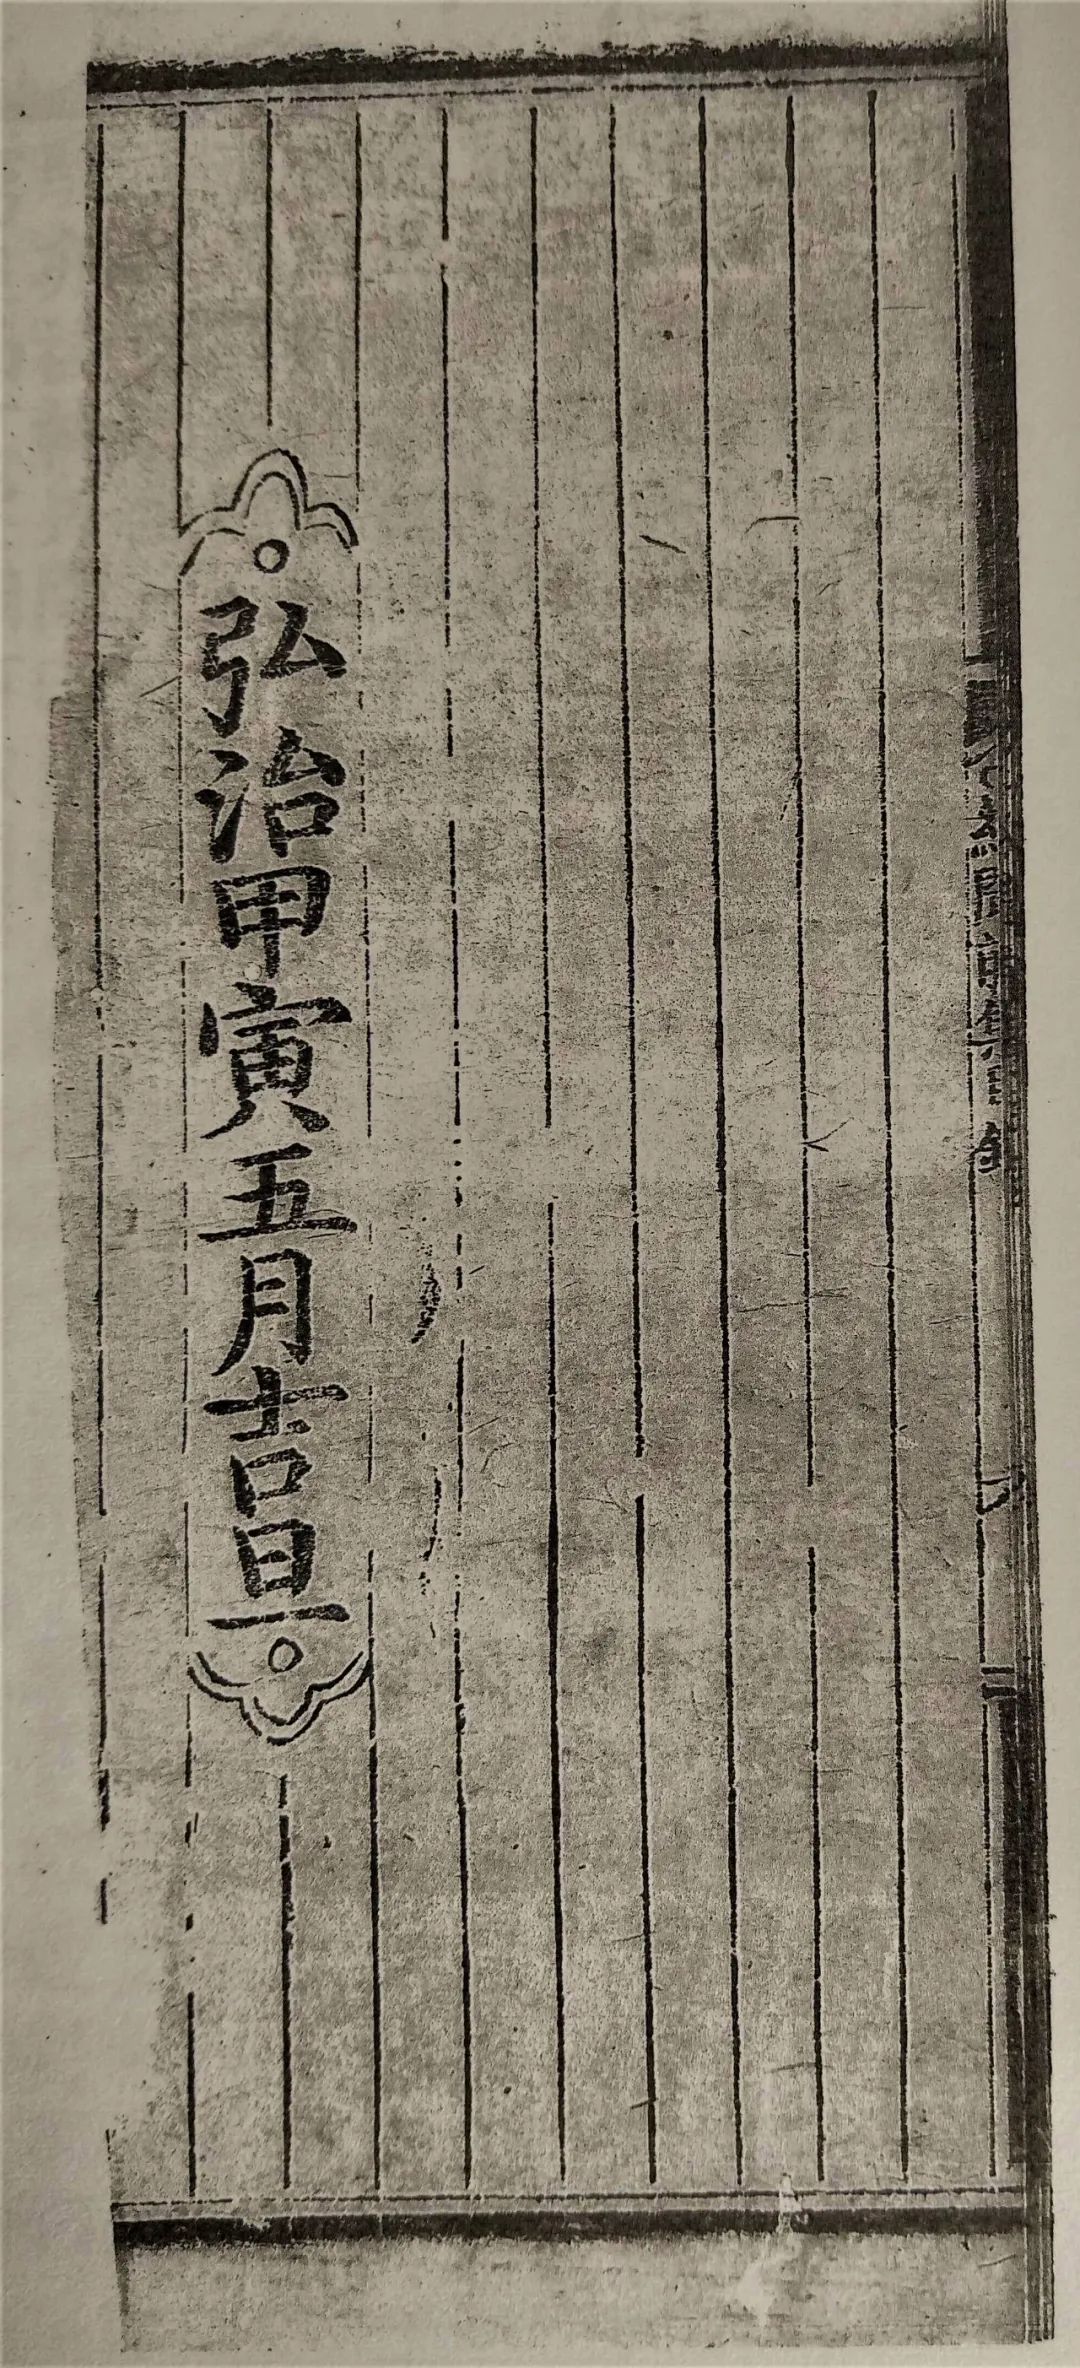 弘治甲寅五月吉旦